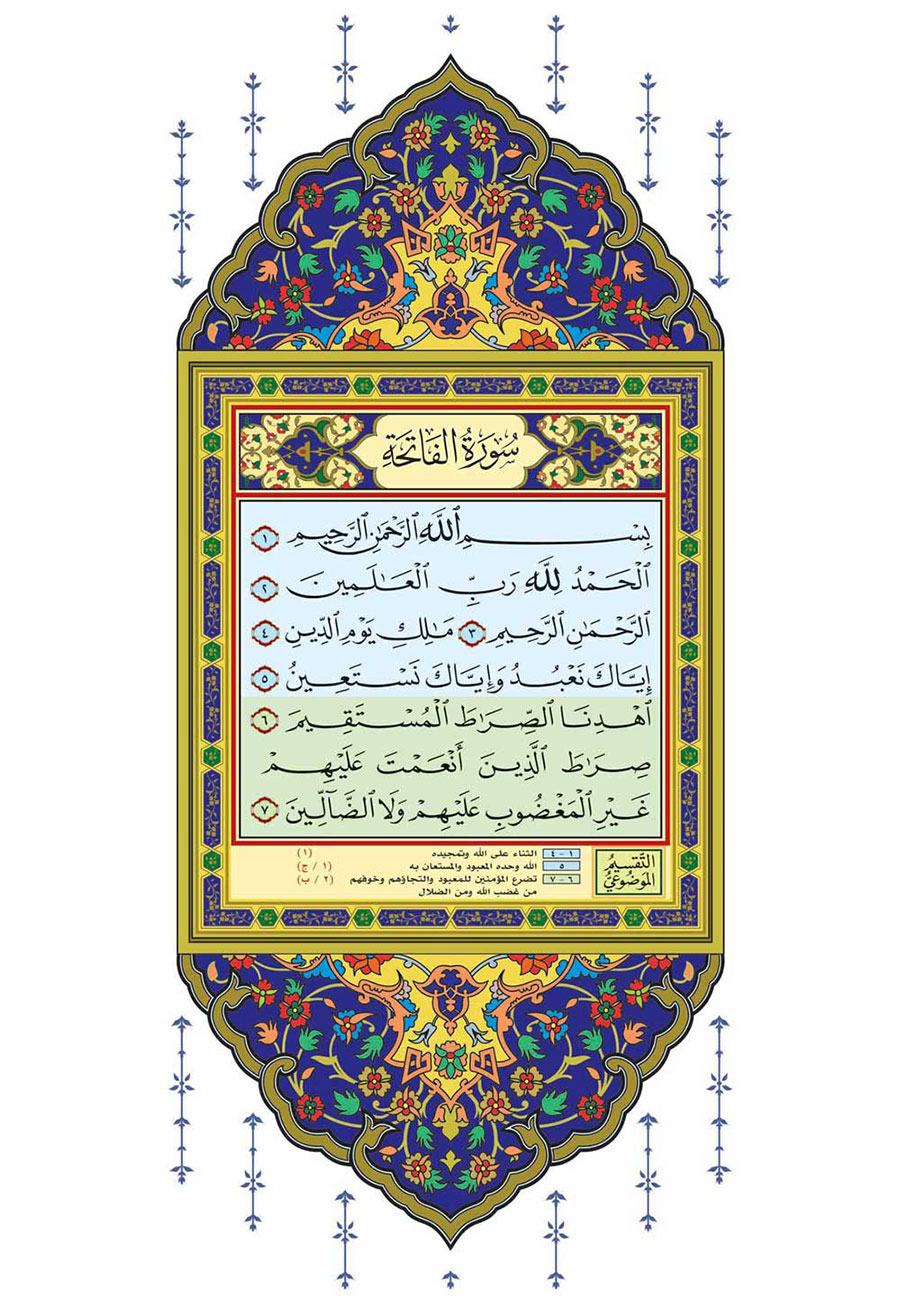 سُورَةُ الفَاتِحَةِ
بِسْمِ ٱللَّهِ ٱلرَّحْمَٰنِ ٱلرَّحِيمِ ١
ٱلْحَمْدُ لِلَّهِ رَبِّ ٱلْعَٰلَمِينَ ٢
ٱلرَّحْمَٰنِ ٱلرَّحِيمِ ٣ مَٰلِكِ يَوْمِ ٱلدِّينِ ٤
إِيَّاكَ نَعْبُدُ وَإِيَّاكَ نَسْتَعِينُ ٥
ٱهْدِنَا ٱلصِّرَٰطَ ٱلْمُسْتَقِيمَ ٦
صِرَٰطَ ٱلَّذِينَ أَنْعَمْتَ عَلَيْهِمْ
غَيْرِ ٱلْمَغْضُوبِ عَلَيْهِمْ وَلَا ٱلضَّآلِّينَ ٧
التَّقسِيمُ
المَوضُوعِيُّ
١ - ٤ الثناء على الله وتمجيده (١)
٥ الله وحده المعبود والمستعان به (١ / ج)
٦ - ٧ تضرع المؤمنين للمعبود والتجاؤهم وخوفهم (٢ / ب)
من غضب الله ومن الضلال